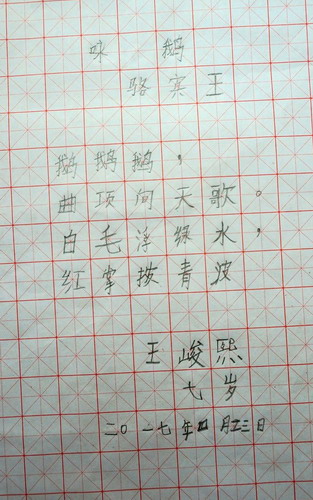 咏鹅
骆宾王
鹅鹅鹅，
曲项向天歌。
白毛浮绿水，
红掌拨青波
王峻熙
七岁
二〇一七年四月三日